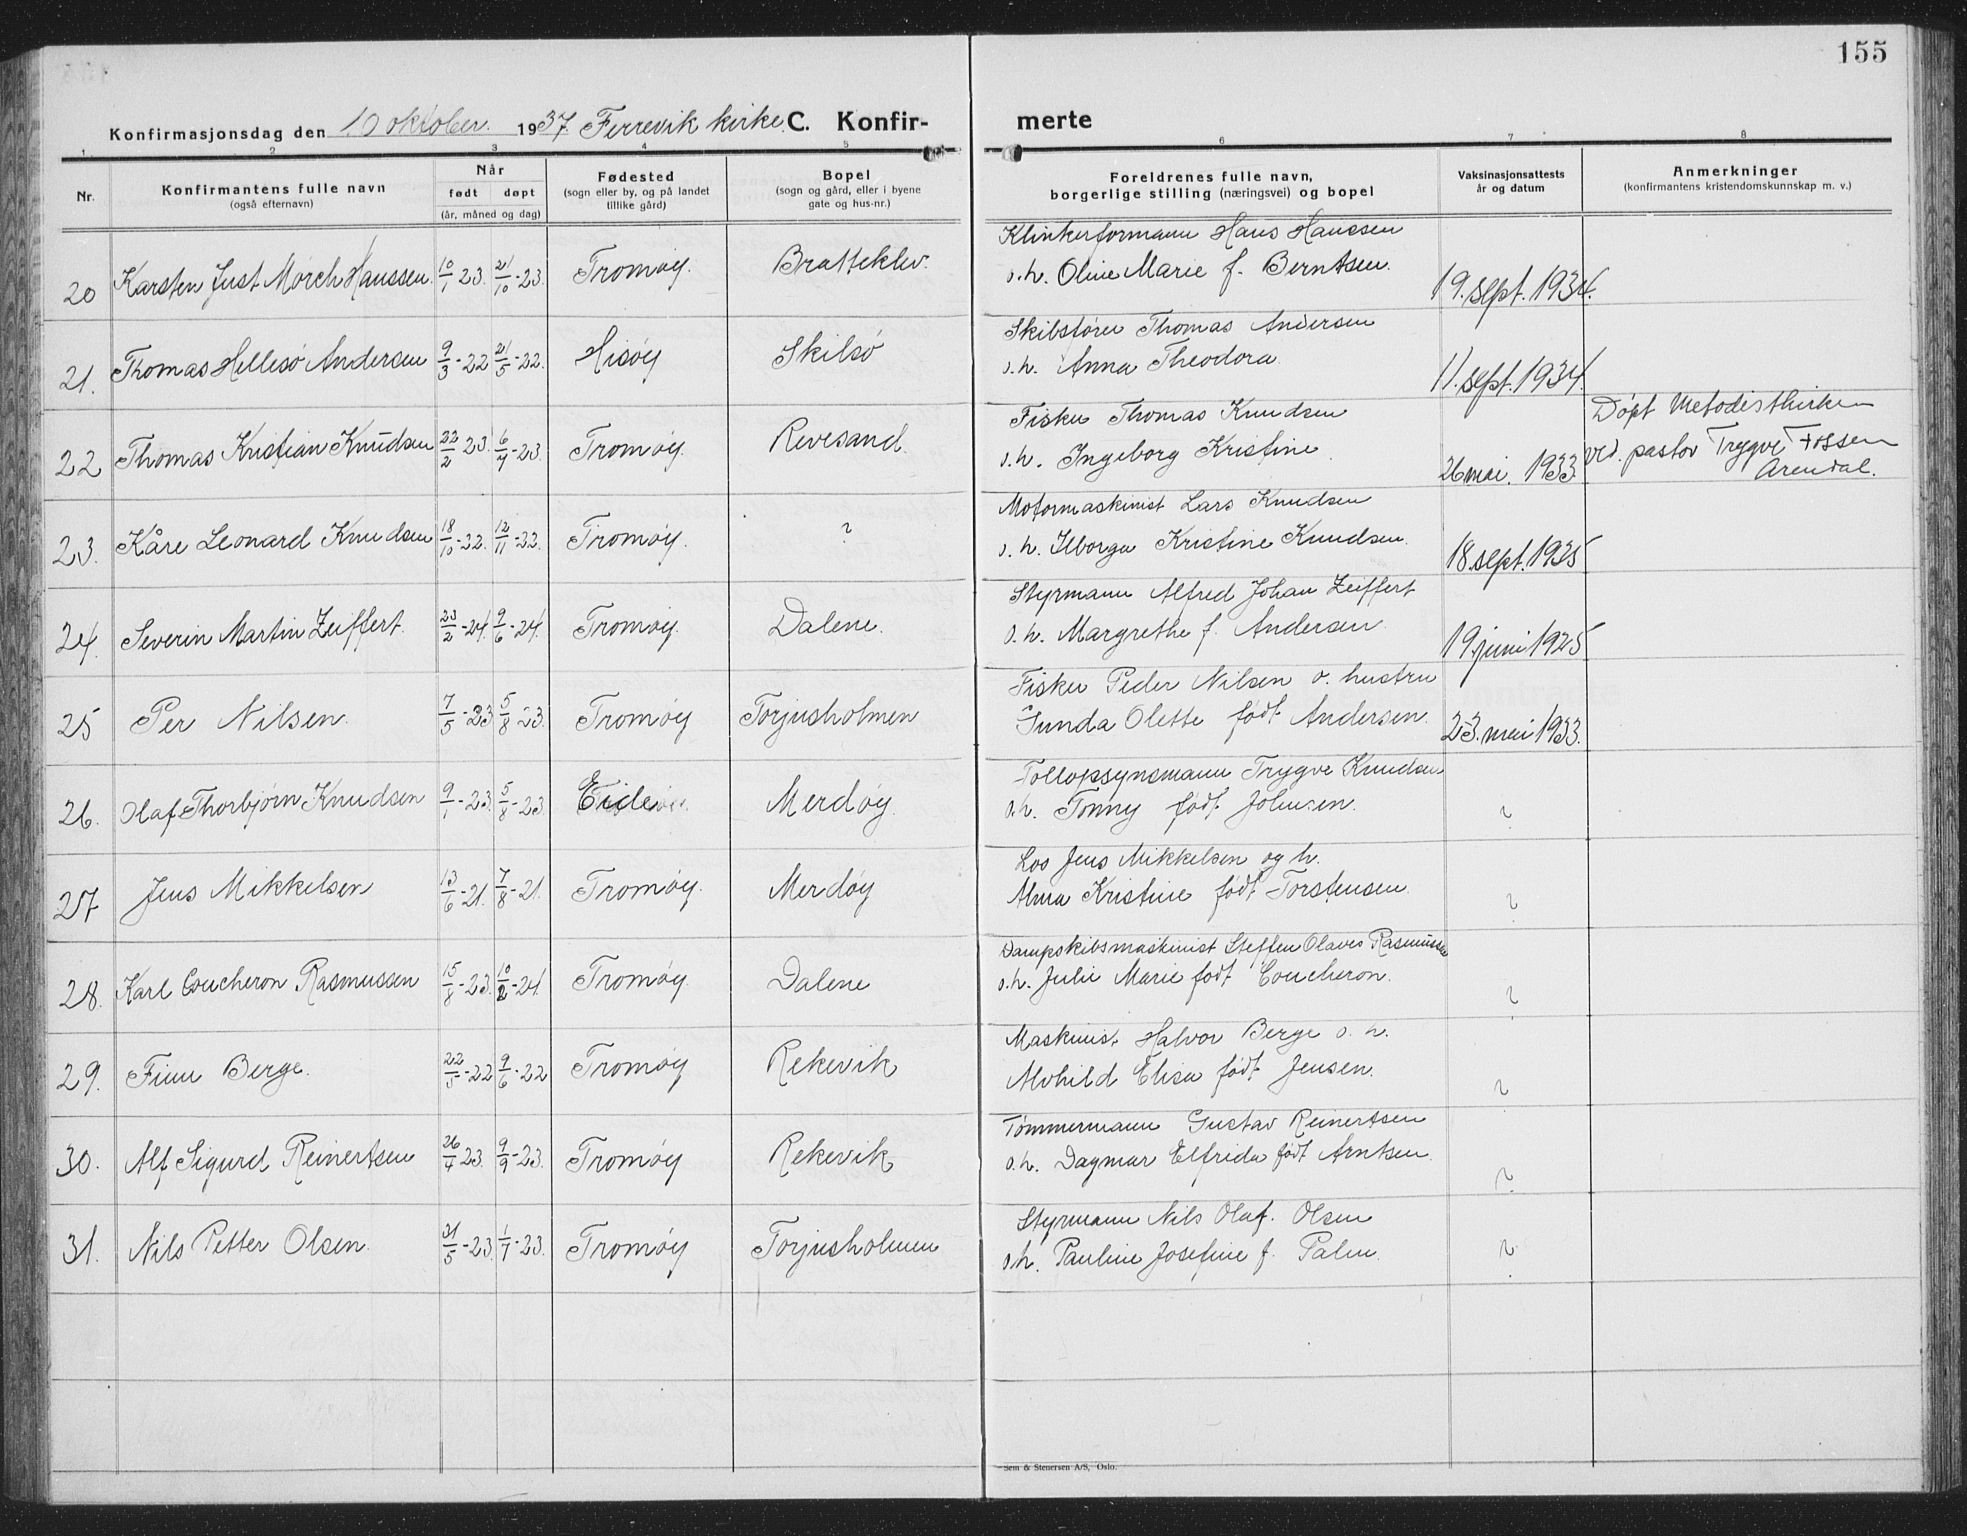 155
Konfirmasjonsdag den 10 oktober. 1937. Færrevik kirke. C. Konfir-merte
1 2 3 4 5 6 7 8
Nr. Konfirmantens fulle navn (også efternavn) Når født døpt (år, måned og dag) Fødested (sogn eller by, og på landet tillike gård) Bopel (sogn og gård, eller i byene gate og hus-nr.) Foreldrenes fulle navn, borgerlige stilling (næringsvei) og bopel Vaksinasjonsattests år og datum Anmerkninger (konfirmantens kristendomskunnskap m. v.)
Klinkerformann Hans Hanssen
20 Karsten Just Mörch Hanssen. 10/1 23. 21/10-23. Tromøy. Bratteklev. o.h. Oline Marie f. Berntsen. 19. sept. 1934.
Skibsfører Thomas Andersen
21. Thomas Hellesö Andersen 9/3-22 21/5-22. Hisøy Skilsö o.h. Anna Theodora. 11. sept. 1934.
Fisker Thomas Knudsen Döpt Metodistkirken
22 Thomas Kristian Knudsen 22/2 23. 6/4-23. Tromøy. Revesand o.h. Ingeborg Kristine. 26 mai. 1933. ved. pastor Trygve Fossen
Arendal.
Motormaskinist Lars Knudsen
23. Kåre Leonard Knudsen 18/10-22. 12/11-22. Tromøy. ? o.h. Ilborga Kristine Knudsen. 18. sept. 1935
Styrmann Alfred Johan Zeiffert
24. Severin Martin Zeiffert. 23/2-24. 9/6-24. Tromøy. Dalene. o.h. Margrethe f. Andersen. 19 juni 1925
Fisker Peder Nilsen o. hustru
25 Per Nilsen. 7/5-23 5/8-23. Tromøy Torjusholmen Gunda Olette født Andersen. 23. mai 1933.
Tollopsynsmann Trygve Knudsen
26. Olaf Thorbjørn Knudsen 9/1-23. 5/8-23. Eide Merdøy. o.h. Tonny født Johnsen. ?
Los Jens Mikkelsen og h.
27 Jens Mikkelsen 13/6-21. 7/8-21. Tromøy. Merdøy Alma Kristine født Torstensen. ?
Dampskibsmaskinist Steffen Olaves Rasmussen
28. Karl Coucheron Rasmussen 15/8-23. 10/2-24. Tromøy. Dalene o.h. Julie Marie født Coucheron. ?
Maskinist Halvor Berge o. h.
29. Finn Berge. 22/5-22 9/6-22 Tromøy Rekevik Alvhild Elisa født Jensen. ?
Tömmermann Gustav Reinertsen
30. Alf Sigurd Reinertsen 26/4 23. 9/9-23. Tromøy Rekevik o.h. Dagmar Elfrida født Arntsen. ?
Styrmann Nils Olaf. Olsen
31. Nils Petter Olsen. 31/5-23. 1/7-23. Tromøy Torjusholmen o.h. Pauline Josefine f. Palm. ?
Sem & Stenersen A/S, Oslo.